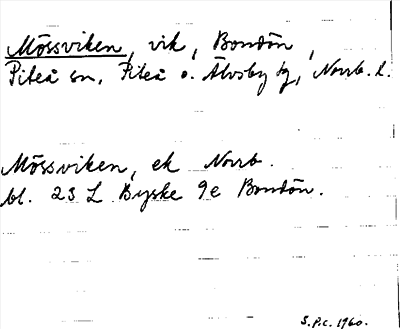 Mössviken, vik, Bondön,
Piteå sn, Piteå o. Älvsby tg, Norrb. l.
Mössviken, ek Norrb.
bl. 23 L Byske 9e Bondön.
S.P.C. 1960.